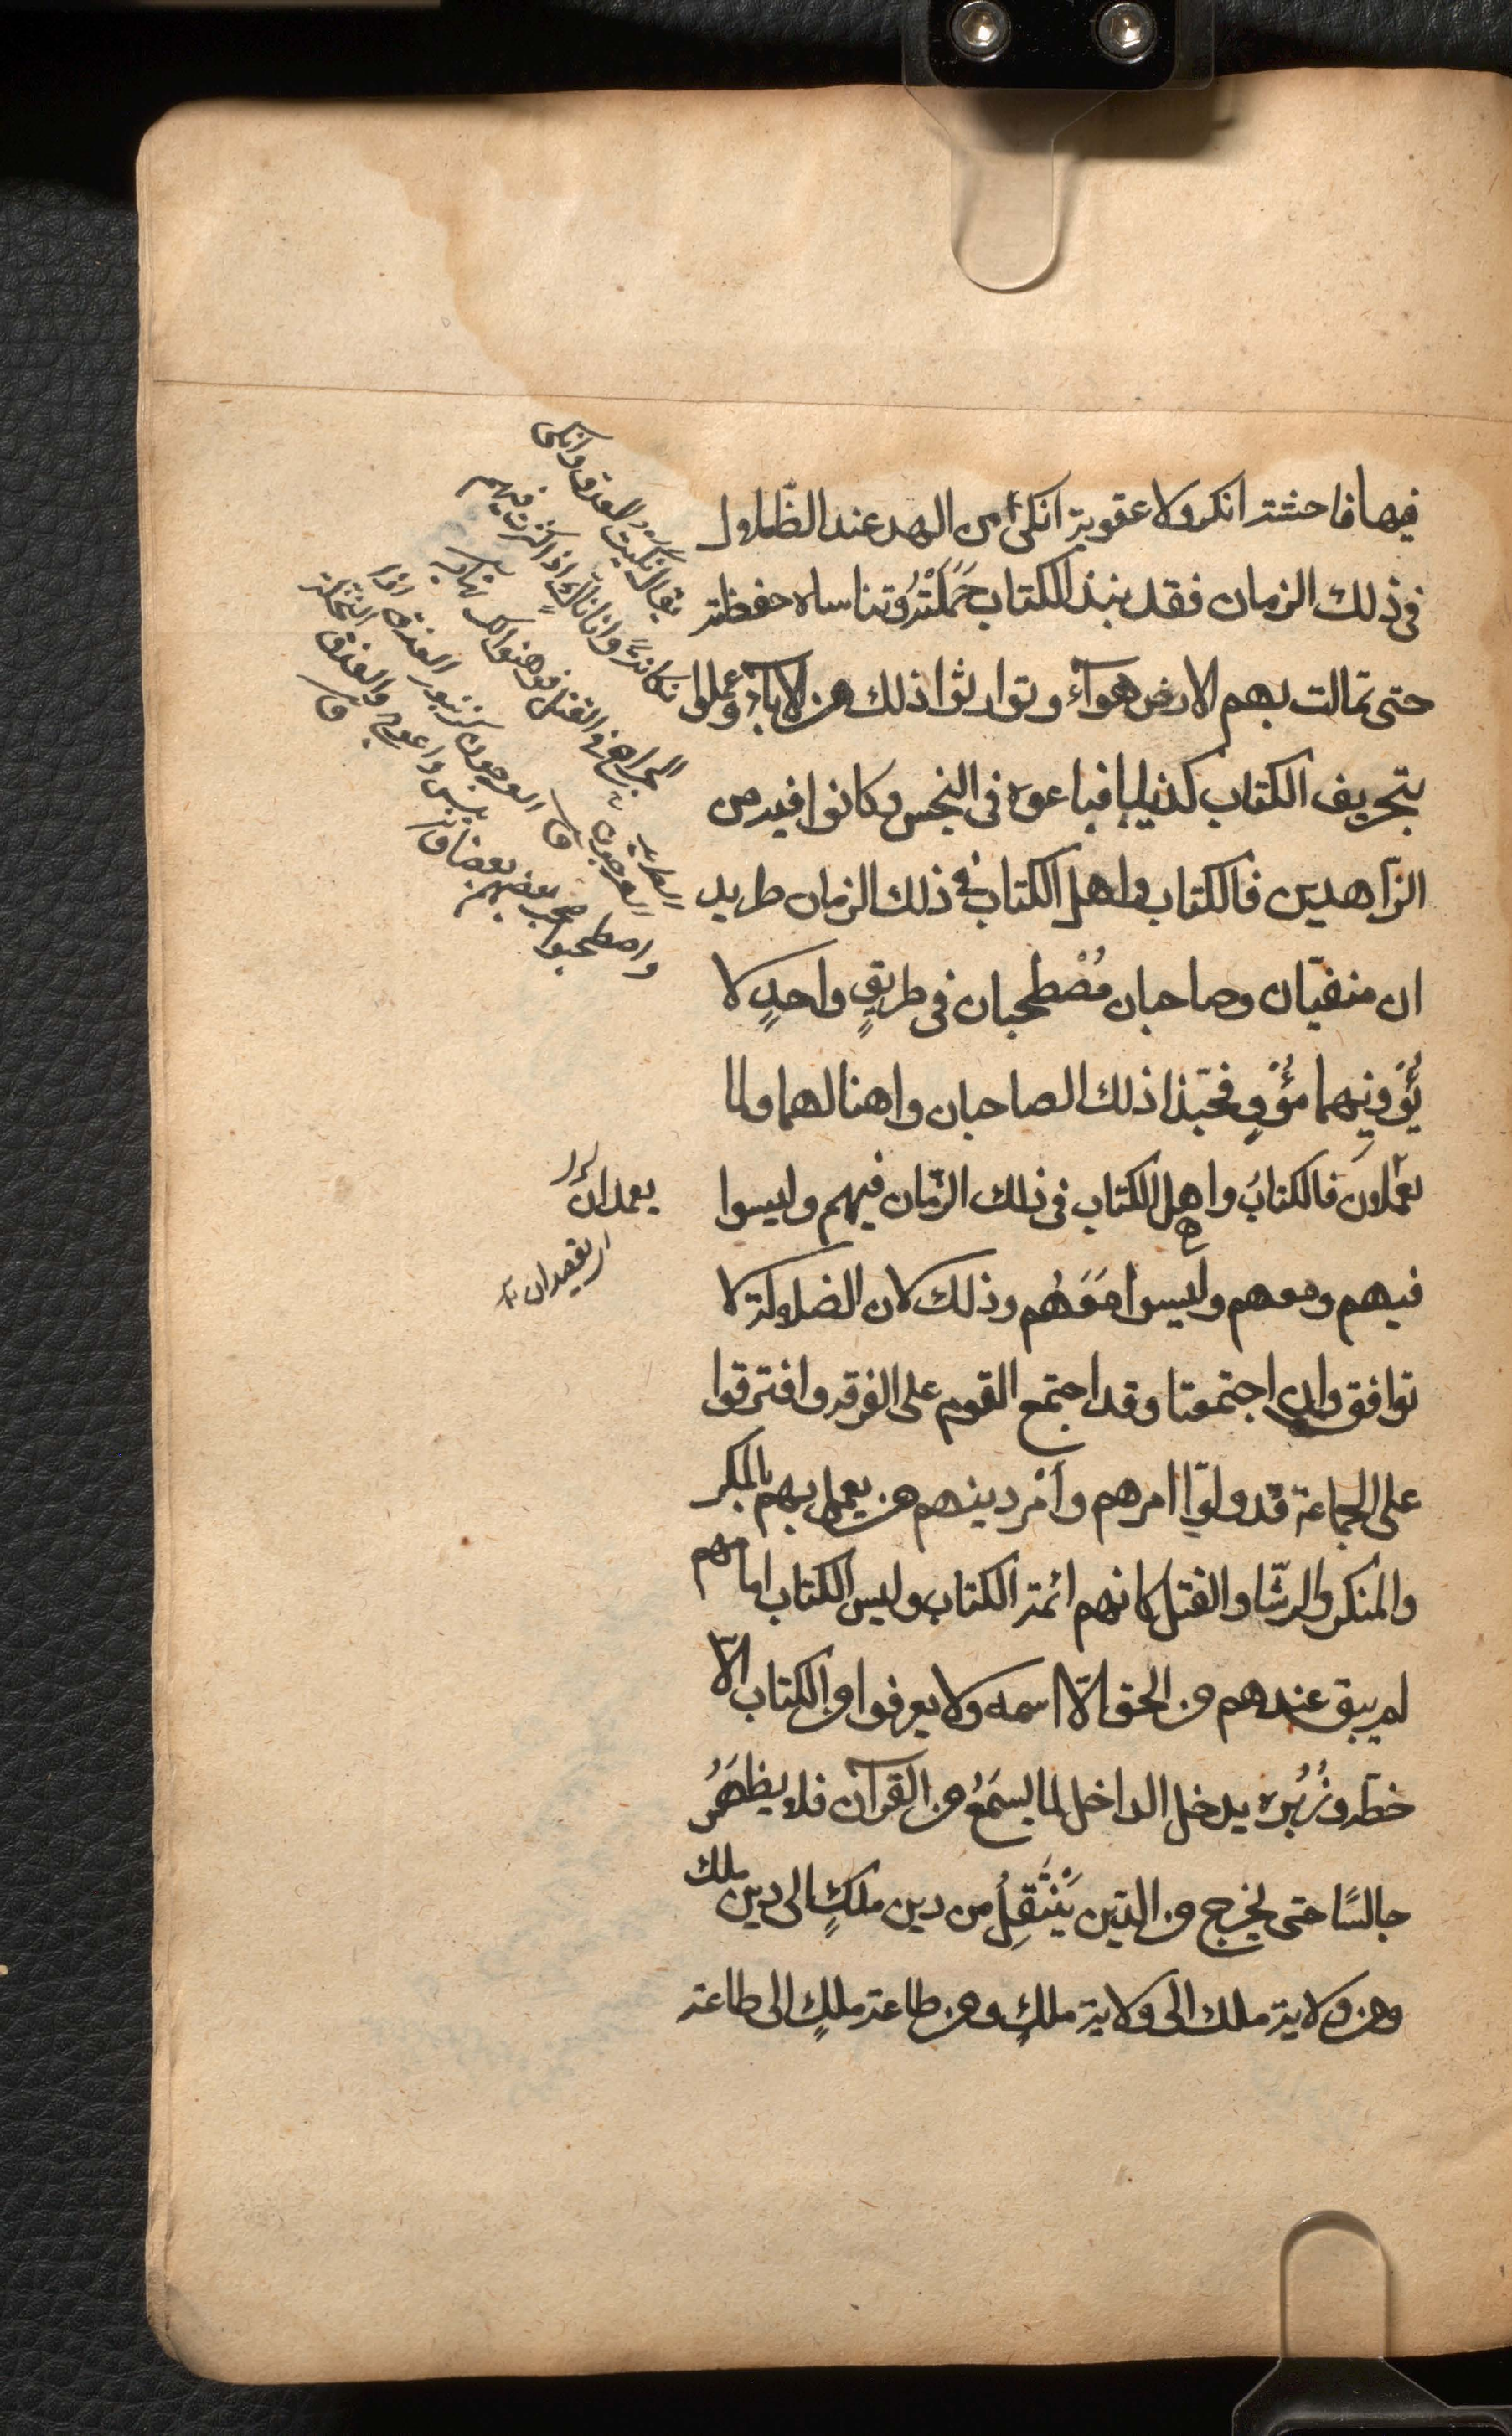 فيها فاحشة انكر ولا عقوبة انكى من الهدى عند الضلال
فى ذلك الزمان فقد نبذ الكتاب حَمَلَتُهُ وتناساه حفظته
حتى تمالت بهم الاهواء وتوارثوا ذلك من الاباء وعملوا
بتحريف الكتاب كذبا فباعوه فى البخس وكانوا فيه من
الزاهدين فالكتاب واهل الكتاب فى ذلك الزمان طريد
ان منفيّان وصاحبان مُصْطحبان فى طريقٍ واحدٍ لا
يُؤْوِيهما مُؤْوٍ فحبّذا ذلك الصاحبان واها لهما ولما
يعملان فالكتابُ واهل الكتاب فى ذلك الزّمان فيهم وليسوا
فيهم ومعهم وليسوا مَعَهُم وذلك لان الضلالة لا
توافق وان اجتمعتا وقد اجتمع القوم على الفرقه وافترقوا
على الجماعة قد ولّوا امرهم وأمْر دينهم من يعمل بهم بالمكر
والمنكر والرشّا والقتل كانهم ائمة الكتاب وليس الكتاب امامهم
لم يبق عندهم من الحق الّا اسمه ولا يعرفوا من الكتاب الّا
خطّه وزُبُره يدخل الداخل لما يسمَعُ من القرآن فلا يظهَرُ
جالسًا حتى يخرج من الدّين يَنْتَقِلُ من دين ملكٍ الى دين ملك
ومن ولاية ملك الى ولاية ملكٍ ومن طاعة ملكٍ الى طاعة
يقال نكيت العدو وانكى
نكاية وانا ناكٍ اذا اكثرت فيهم
الجراح والقتل فوهنوا لذلك نهاية
العرجون
واصطحبوا صحب بعضهم بعضا ق
يعمدان له
اى يقصدان